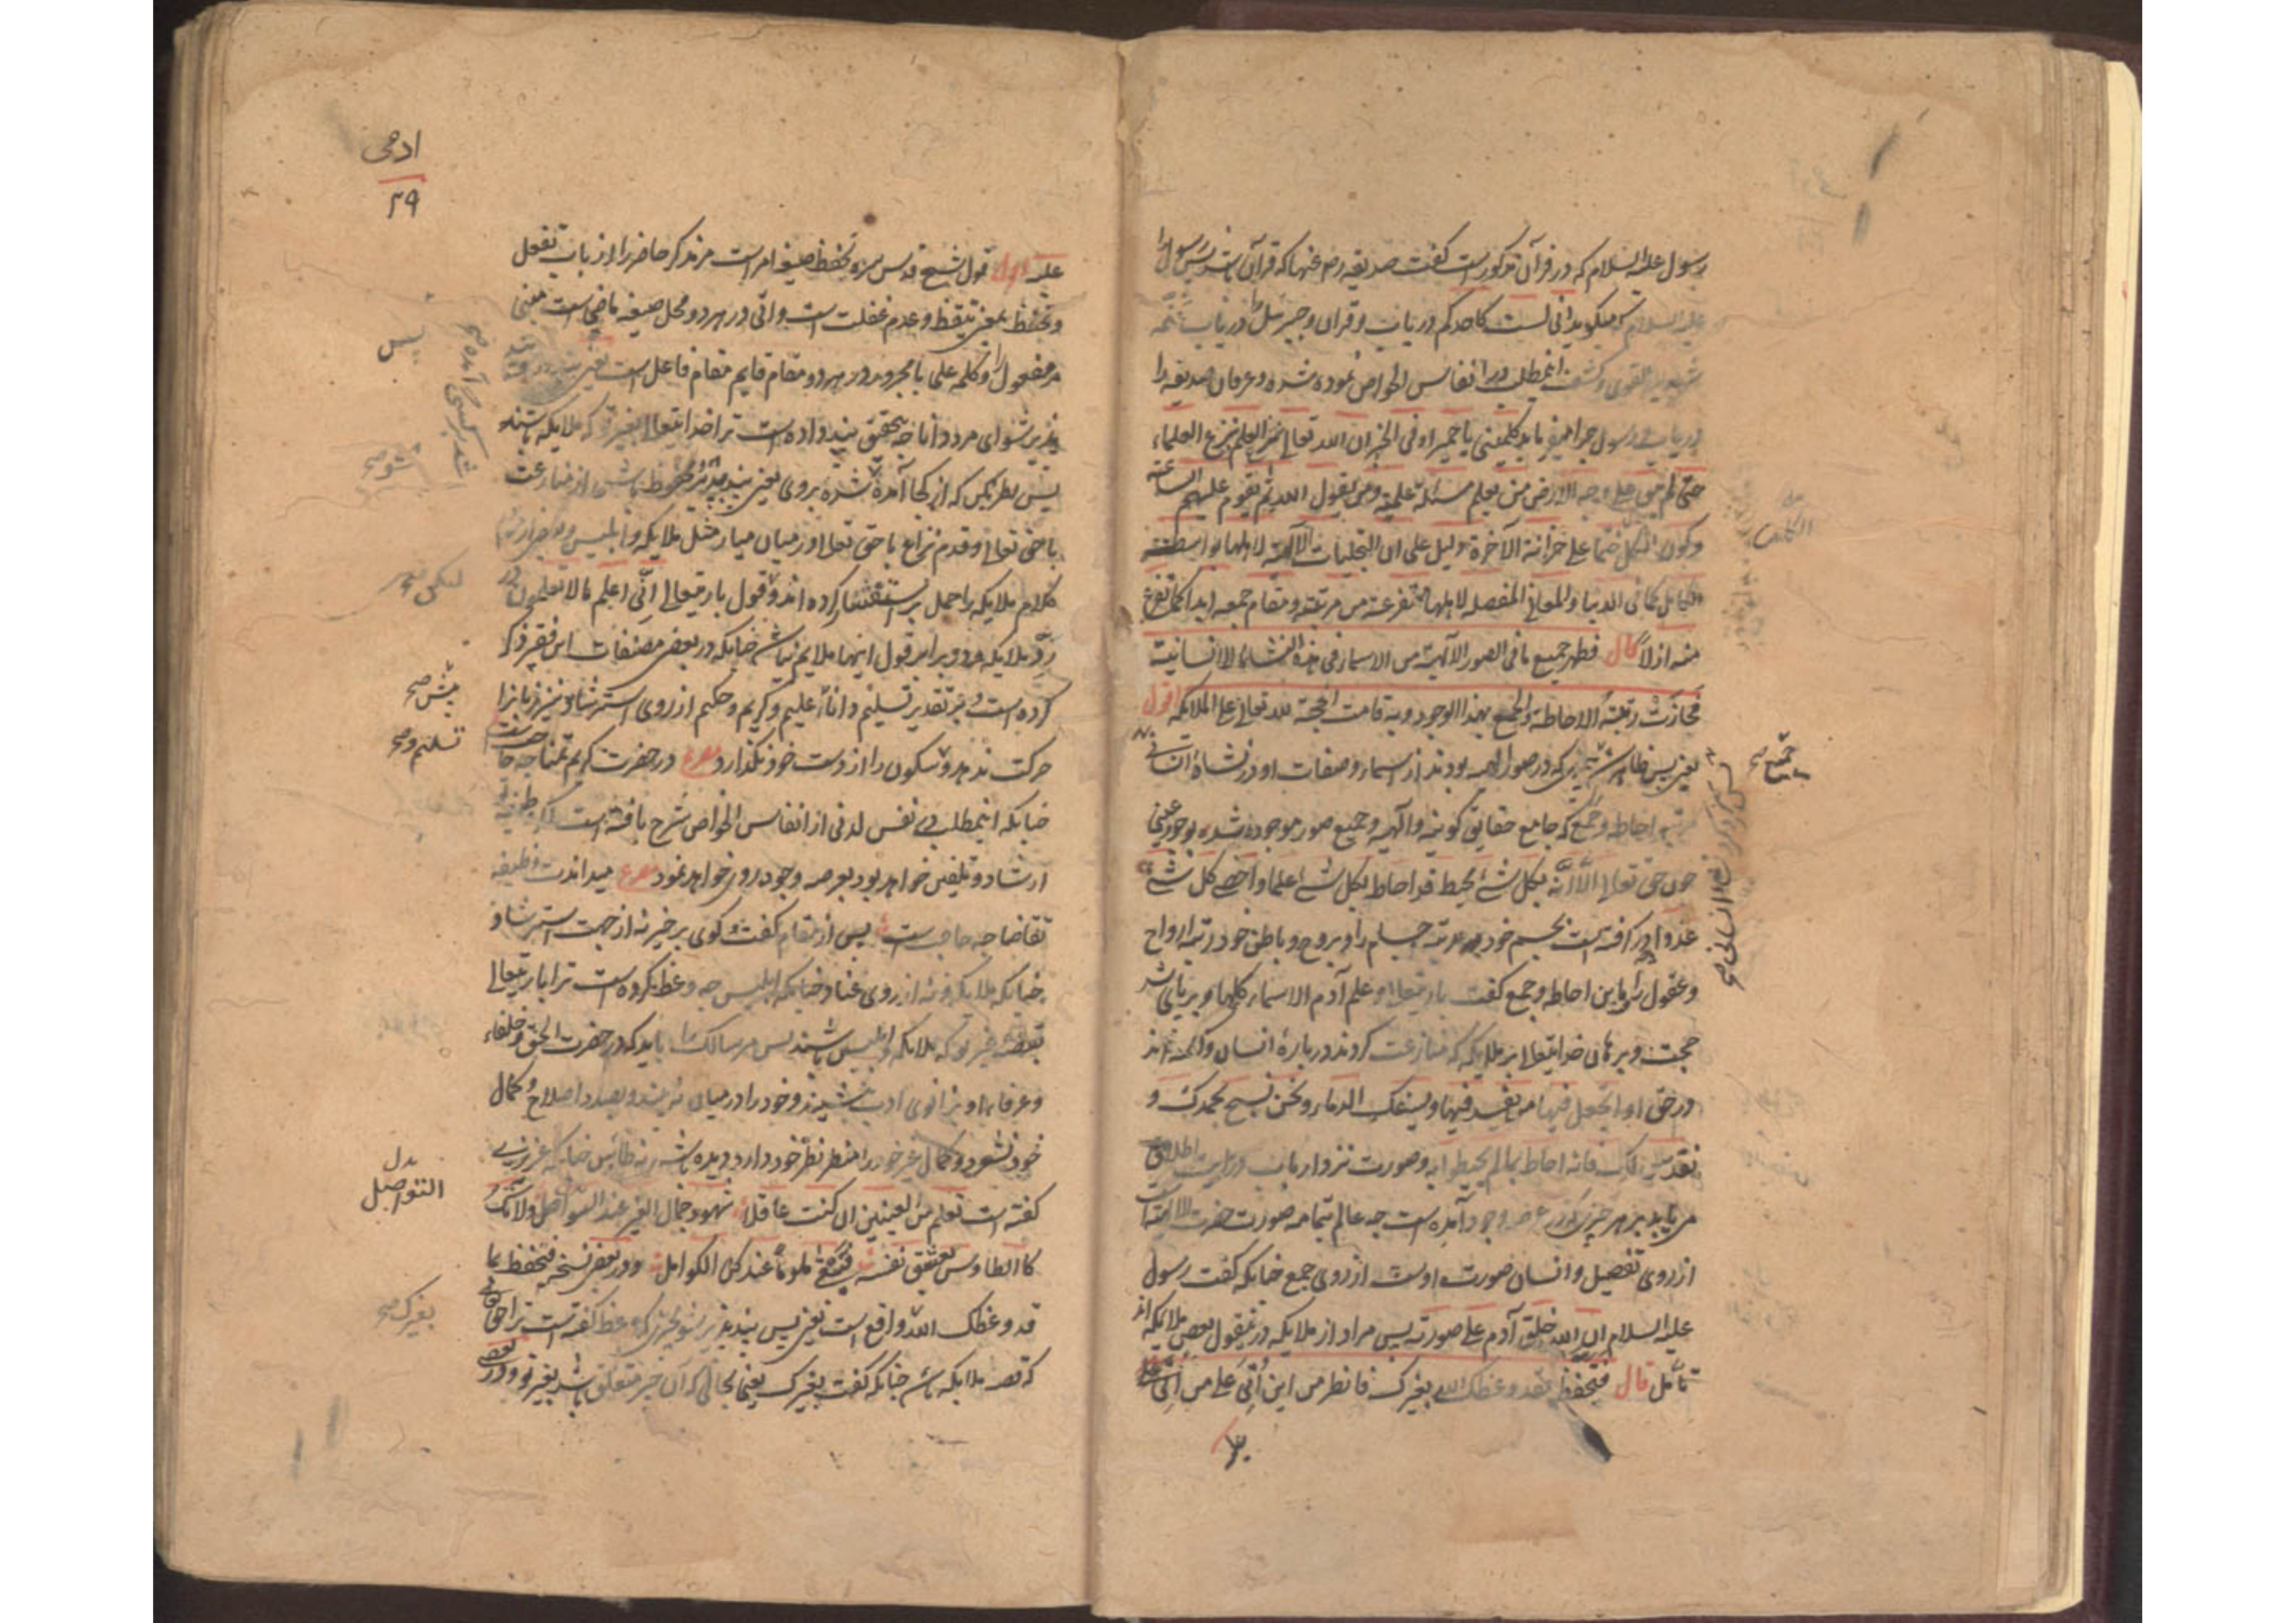 رسول علیه السلام که در قرآن مذکور است گفت صدیقه رضی عنها که قرآن
علیه السلام که میگوید انی لست کاحدکم دریاب و قران و جبرئیل را دریاب
شدید القوی و کشف اینمطلب در انفاس الخواص نموده شده و عرفان صدیقه را
دریاب و رسول چرا میفرماید کلمینی یا حمیرا و فی الخبر ان الله تعالی ینزع العلماء
حتی لم یبق علی وجه الارض من یعلم مسئلة علمیة و من یقول الله ثم یقوم علیهم الساعة
و کون الکامل ختما علی خزانة الآخرة دلیل علی ان التجلیات الآلهیة لاهلها بواسطة
الکامل کما فی الدنیا والمعانی المفصله لاهلها متفرعة من مرتبته و مقام جمعه ابدا کما تفرع
منه ازلا قال فظهر جمیع ما فی الصور الآلهیة من الاسماء فی هذه النشأة الانسانیة
فحازت رتبة الاحاطة والجمع بهذا الوجود و به قامت الحجة لله تعالی علی الملایکه اقول
یعنی پس ظاهر شد چیزی که در صور الهیه بودند از اسماء و صفات او در نشاة انسانی
احاطه و جمع که جامع حقایق کونیه و الهیه و جمیع صور موجوده شده بوجود عینی
چون حق تعالی الا انه بکل شئ محیط قد احاط بکل شئ علما و احصی کل شئ
عددا و در گرفته است بجسم خود مرتبه اجسام را و بروح و باطن خود رتبه ارواح
و عقول را و باین احاطه و جمع گفت باریتعالی و علم آدم الاسماء کلها و برپای شد
حجت و برهان خدایتعالی بر ملایکه که منازعت کردند درباره انسان و گفته اند
در حق او اتجعل فیها من یفسد فیها و یسفک الدماء و نحن نسبح بحمدک و
نقدس لک فانه احاط بما لم یحیطوا به و صورت نزد ارباب
می یابد بر هر چیزی که در عرصه وجود آمده است چه عالم بتمامه صورت حضرت الالهیة
از روی تفصیل و انسان صورت اوست از روی جمع چنانکه گفت رسول
علیه السلام ان الله خلق آدم علی صورته پس مراد از ملایکه در یقول بعض ملایکه اند
تأمل قال فتحفظ فقد وعظک الله بغیرک فانظر من این اُتی علی من اتی علیه
جمع صح
ادمی
۲۹
علیه اقول قول شیخ قدس سره تحفظ صیغه امر است مر مذکر حاضر را از باب تفعل
و تحفظ بمعنی تیقظ و عدم غفلت است و اتی در هر دو محل صیغه ماضی است مبنی
مر مفعول را و کلمه علی با مجرور در هر دو مقام قایم مقام فاعل است یعنی
پذیر شو ای مرد دانا چه بتحقیق پند داده است ترا خدایتعالی بغیر تو که ملایکه باشند
پس نظر بکن که از کجا آمده شده بر وی یعنی از منازعت
با حق تعالی و قدم نزاع با حق تعالی در میان میار مثل ملایکه و ابلیس
کلام ملایکه را حمل بر استفسار کرده اند و قول باریتعالی انی اعلم ما لا تعلمون در
رد ملایکه و در برابر قول اینها ملایم نباشد چنانکه در بعض مصنفات این فقیر ذکر
کرده است و بر تقدیر تسلیم دانا و علیم و کریم و حکیم از روی استرشاد نیز زبانرا
حرکت ندهد و سکون را از دست خود نگذارد مصرع در حضرت کریم تمنا چه حاجت
چنانکه اینمطلب در نفس لدنی از انفاس الخواص شرح یافته است
ارشاد و تلقین خواهد بود بعرصه وجود روی خواهد نمود مصرع میداندت وظیفه
تقاضا چه حاجت است پس از مقام گفت و گوی برخیز نه از جهت استرشاد
چنانکه ملایکه و نه از روی عناد چنانکه ابلیس چه وعظ کرده است ترا باریتعالی
بقصه غیر تو که ملایکه و ابلیس باشند پس مر سالک را باید که در حضرت الحق و خلفاء
و عرفاء او بزانوی ادب بنشیند و خود را در میان نه بیند و بصدد اصلاح و کمال
خود نشود و کمال غیر خود را منظر نظر خود دارد و دیده باشد نه طاوس چنانکه عزیزی
گفته است تعلم من العینین ان کنت عاقلا شهود جمال الغیر عند التواصل ولا تک
کالطاوس یعشق نفسه فتبقی ملوما عند کل الکوامل و در بعض نسخه فتحفظ بما
قد وعظک الله واقع است یعنی پس پند پذیر شو بچیزی که وعظ گفته است ترا حق تعالی
که قصه ملایکه باشد چنانکه گفت بغیرک یعنی بحالی که آن چیز متعلق باشد بغیر تو و در بعض
پس
شو صح
لیکن صح
تسلیم و صح
بدل
التواصل
بغیرک صح